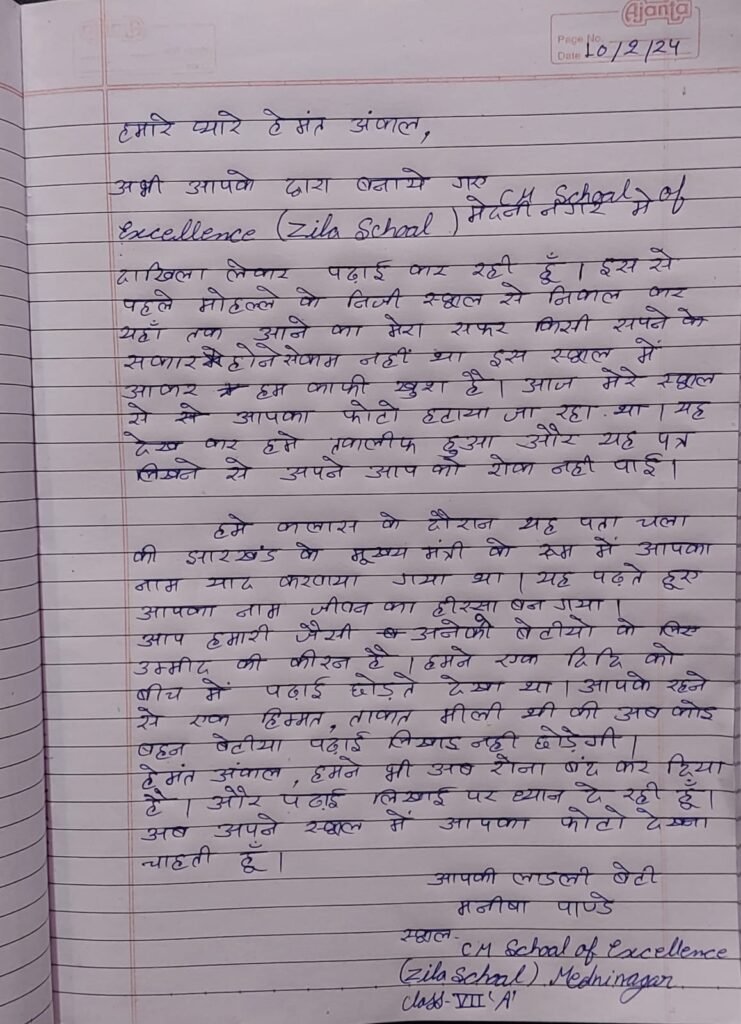 Ajanta
Page No.
Date 10/2/24
हमारे प्यारे हेमंत अंकल,
अभी आपके द्वारा बनाये गए CM School of
Excellence (Zila School) मेदनी नगर में
दाखिला लेकर पढ़ाई कर रही हूँ। इस से
पहले मोहल्ले के निजी स्कूल से निकाल कर
यहाँ तक आने का मेरा सफर किसी सपने के
सकार होने से कम नहीं था इस स्कूल में
आकर हम काफी खुश है। आज मेरे स्कूल
से आपका फोटो हटाया जा रहा था। यह
देख कर हमे तकालीफ हुआ और यह पत्र
लिखने से अपने आप को रोक नही पाई।
हमे कलास के दौरान यह पता चला
की झारखंड के मूख्य मंत्री के रूम में आपका
नाम याद करवाया गया था। यह पढ़ते हूए
आपका नाम जीवन का हीस्सा बन गया।
आप हमारी जैसी अनेको बेटीयो के लिए
उम्मीद की कीरन है। हमने एक दिदि को
बीच में पढ़ाई छोड़ते देखा था। आपके रहने
से एक हिम्मत, ताकत मीली थी की अब कोइ
बहन बेटीया पढ़ाई लिखाइ नही छोड़ेगी।
हेमंत अंकाल, हमने भी अब रोना बंद कर दिया
है। और पढाई लिखाई पर ध्यान दे रही हूँ।
अब अपने स्कूल में आपका फोटो देखना
चाहती हूँ।
आपकी लाडली बेटी
मनीषा पाण्डे
स्कूल- CM School of Excellence
(Zila School) Medninagar
Class-VII 'A'